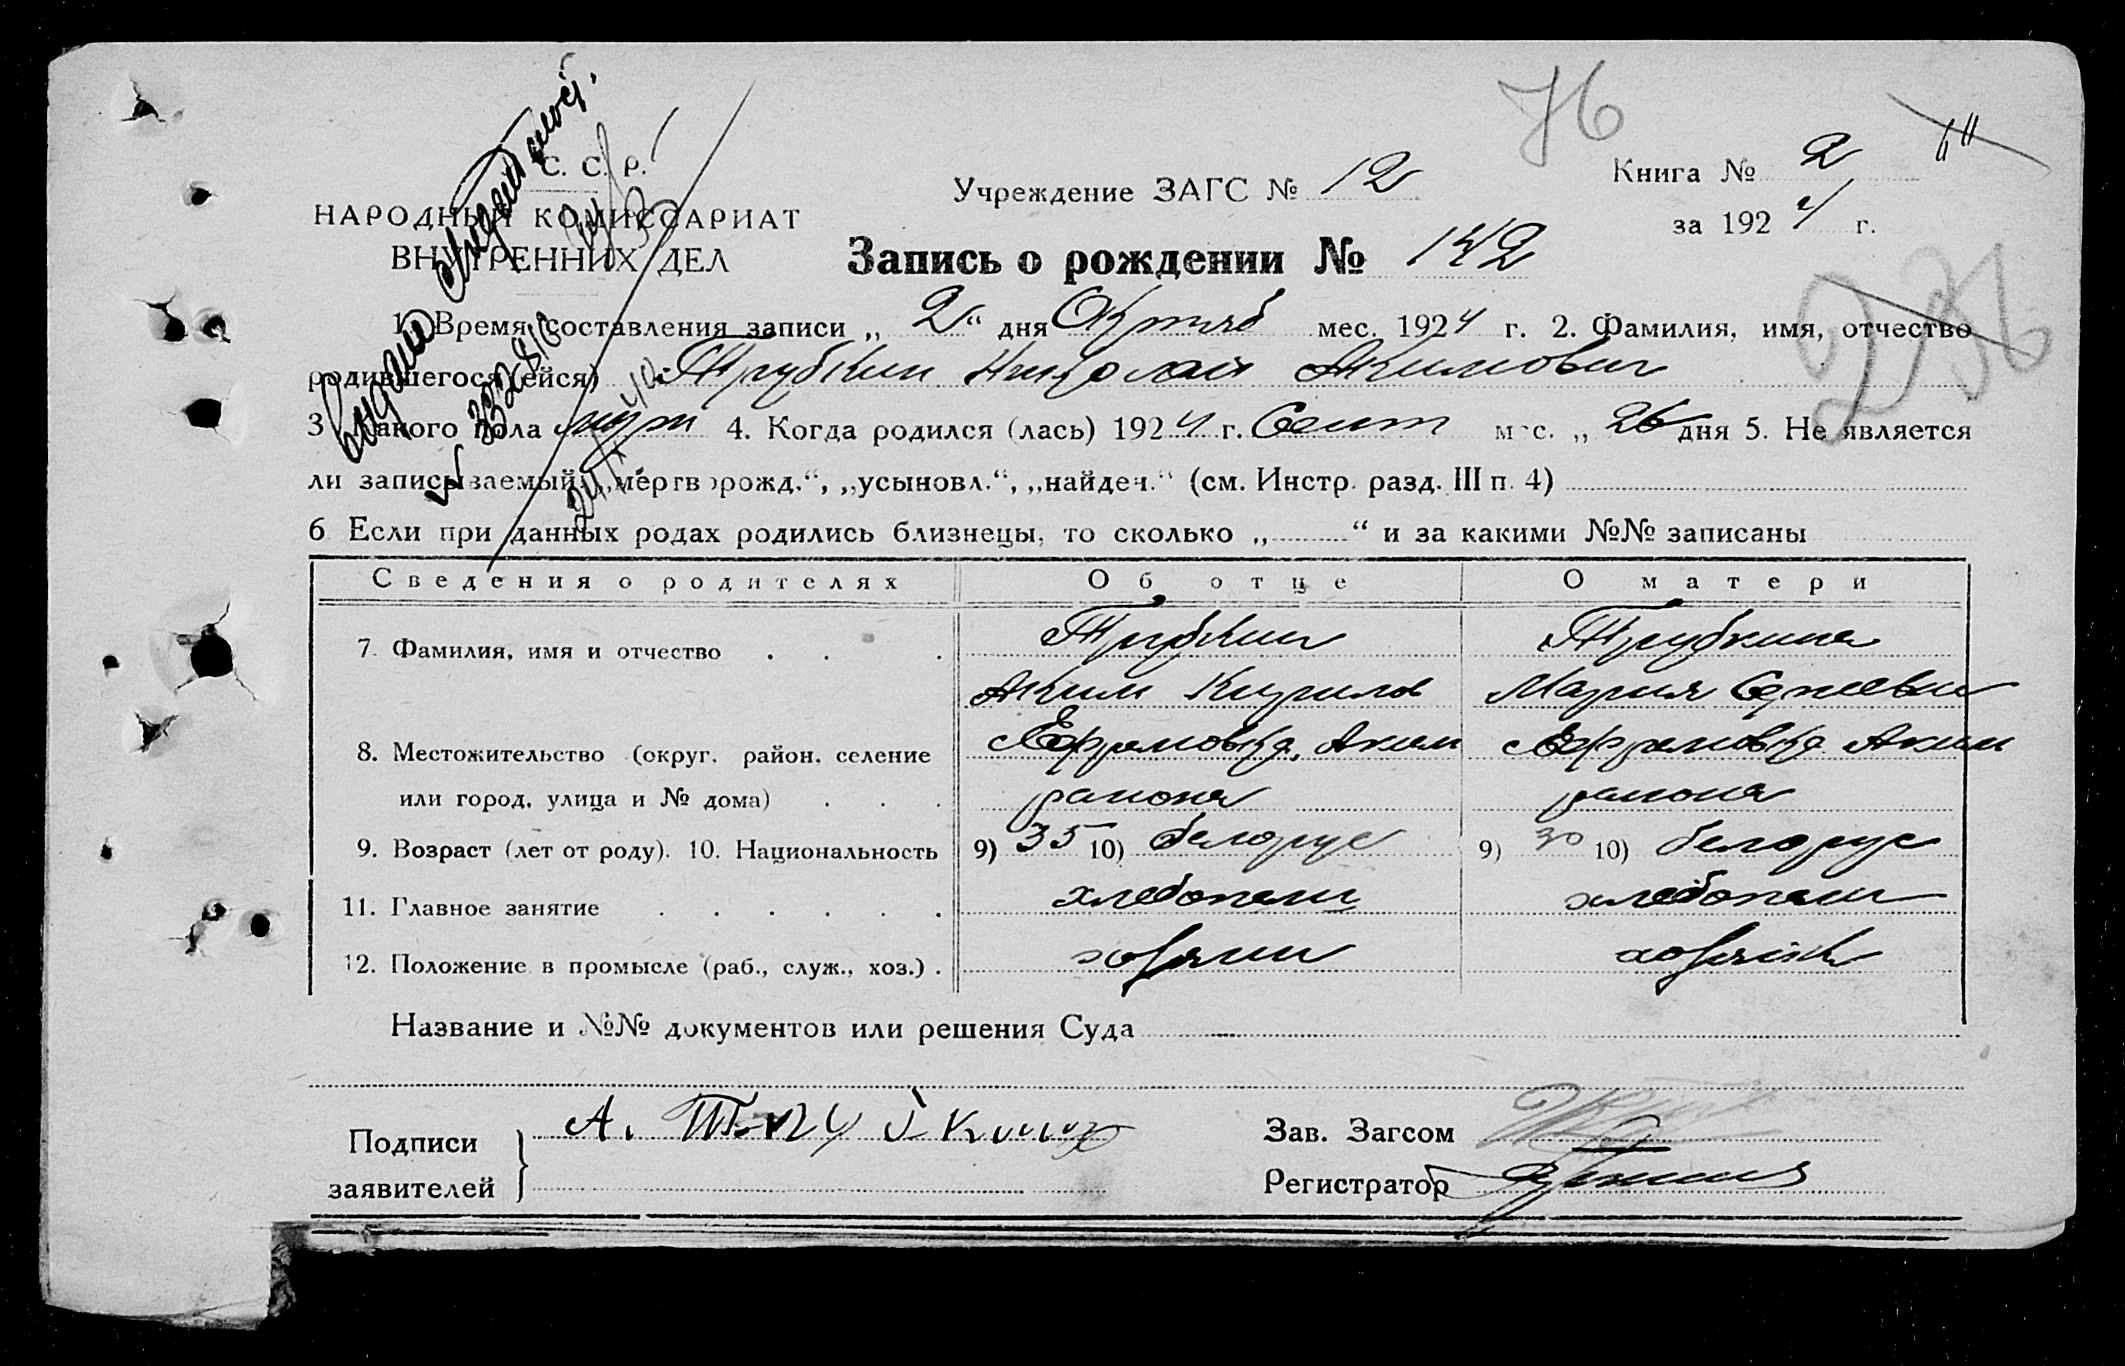 76
С. С. Р.
НАРОДНЫЙ КОМИССАРИАТ
ВНУТРЕННИХ ДЕЛ
Учреждение ЗАГС № 12
Книга № 2
за 1924 г.
Запись о рождении № 142
1. Время составления записи „ 2 “ дня Октяб мес. 1924 г. 2. Фамилия, имя, отчество
родившегося (ейся) Трубкин Николай Акимович
3 Какого пола муж 4. Когда родился (лась) 1924 г. Сент мес. „ 26 дня 5. Не является
ли записываемый „мертворожд.“, „усыновл.“, „найден.“ (см. Инстр. разд. III п. 4)
6 Если при данных родах родились близнецы, то сколько „ “ и за какими №№ записаны
Сведения о родителях Об отце О матери
7. Фамилия, имя и отчество Трубкин Трубкина
Аким Кирилов Мария
8. Местожительство (округ, район, селение Ефремовка, Аким Ефремовка Аким
или город, улица и № дома) района района
9. Возраст (лет от роду). 10. Национальность 9) 35 10) белорус 9) 30 10) белорус
11. Главное занятие хлебопаш хлебопаш
12. Положение в промысле (раб., служ., хоз.) хозяин хозяйк
Название и №№ документов или решения Суда
Подписи
заявителей
А. Трубкинъ
Зав. Загсом
Регистратор